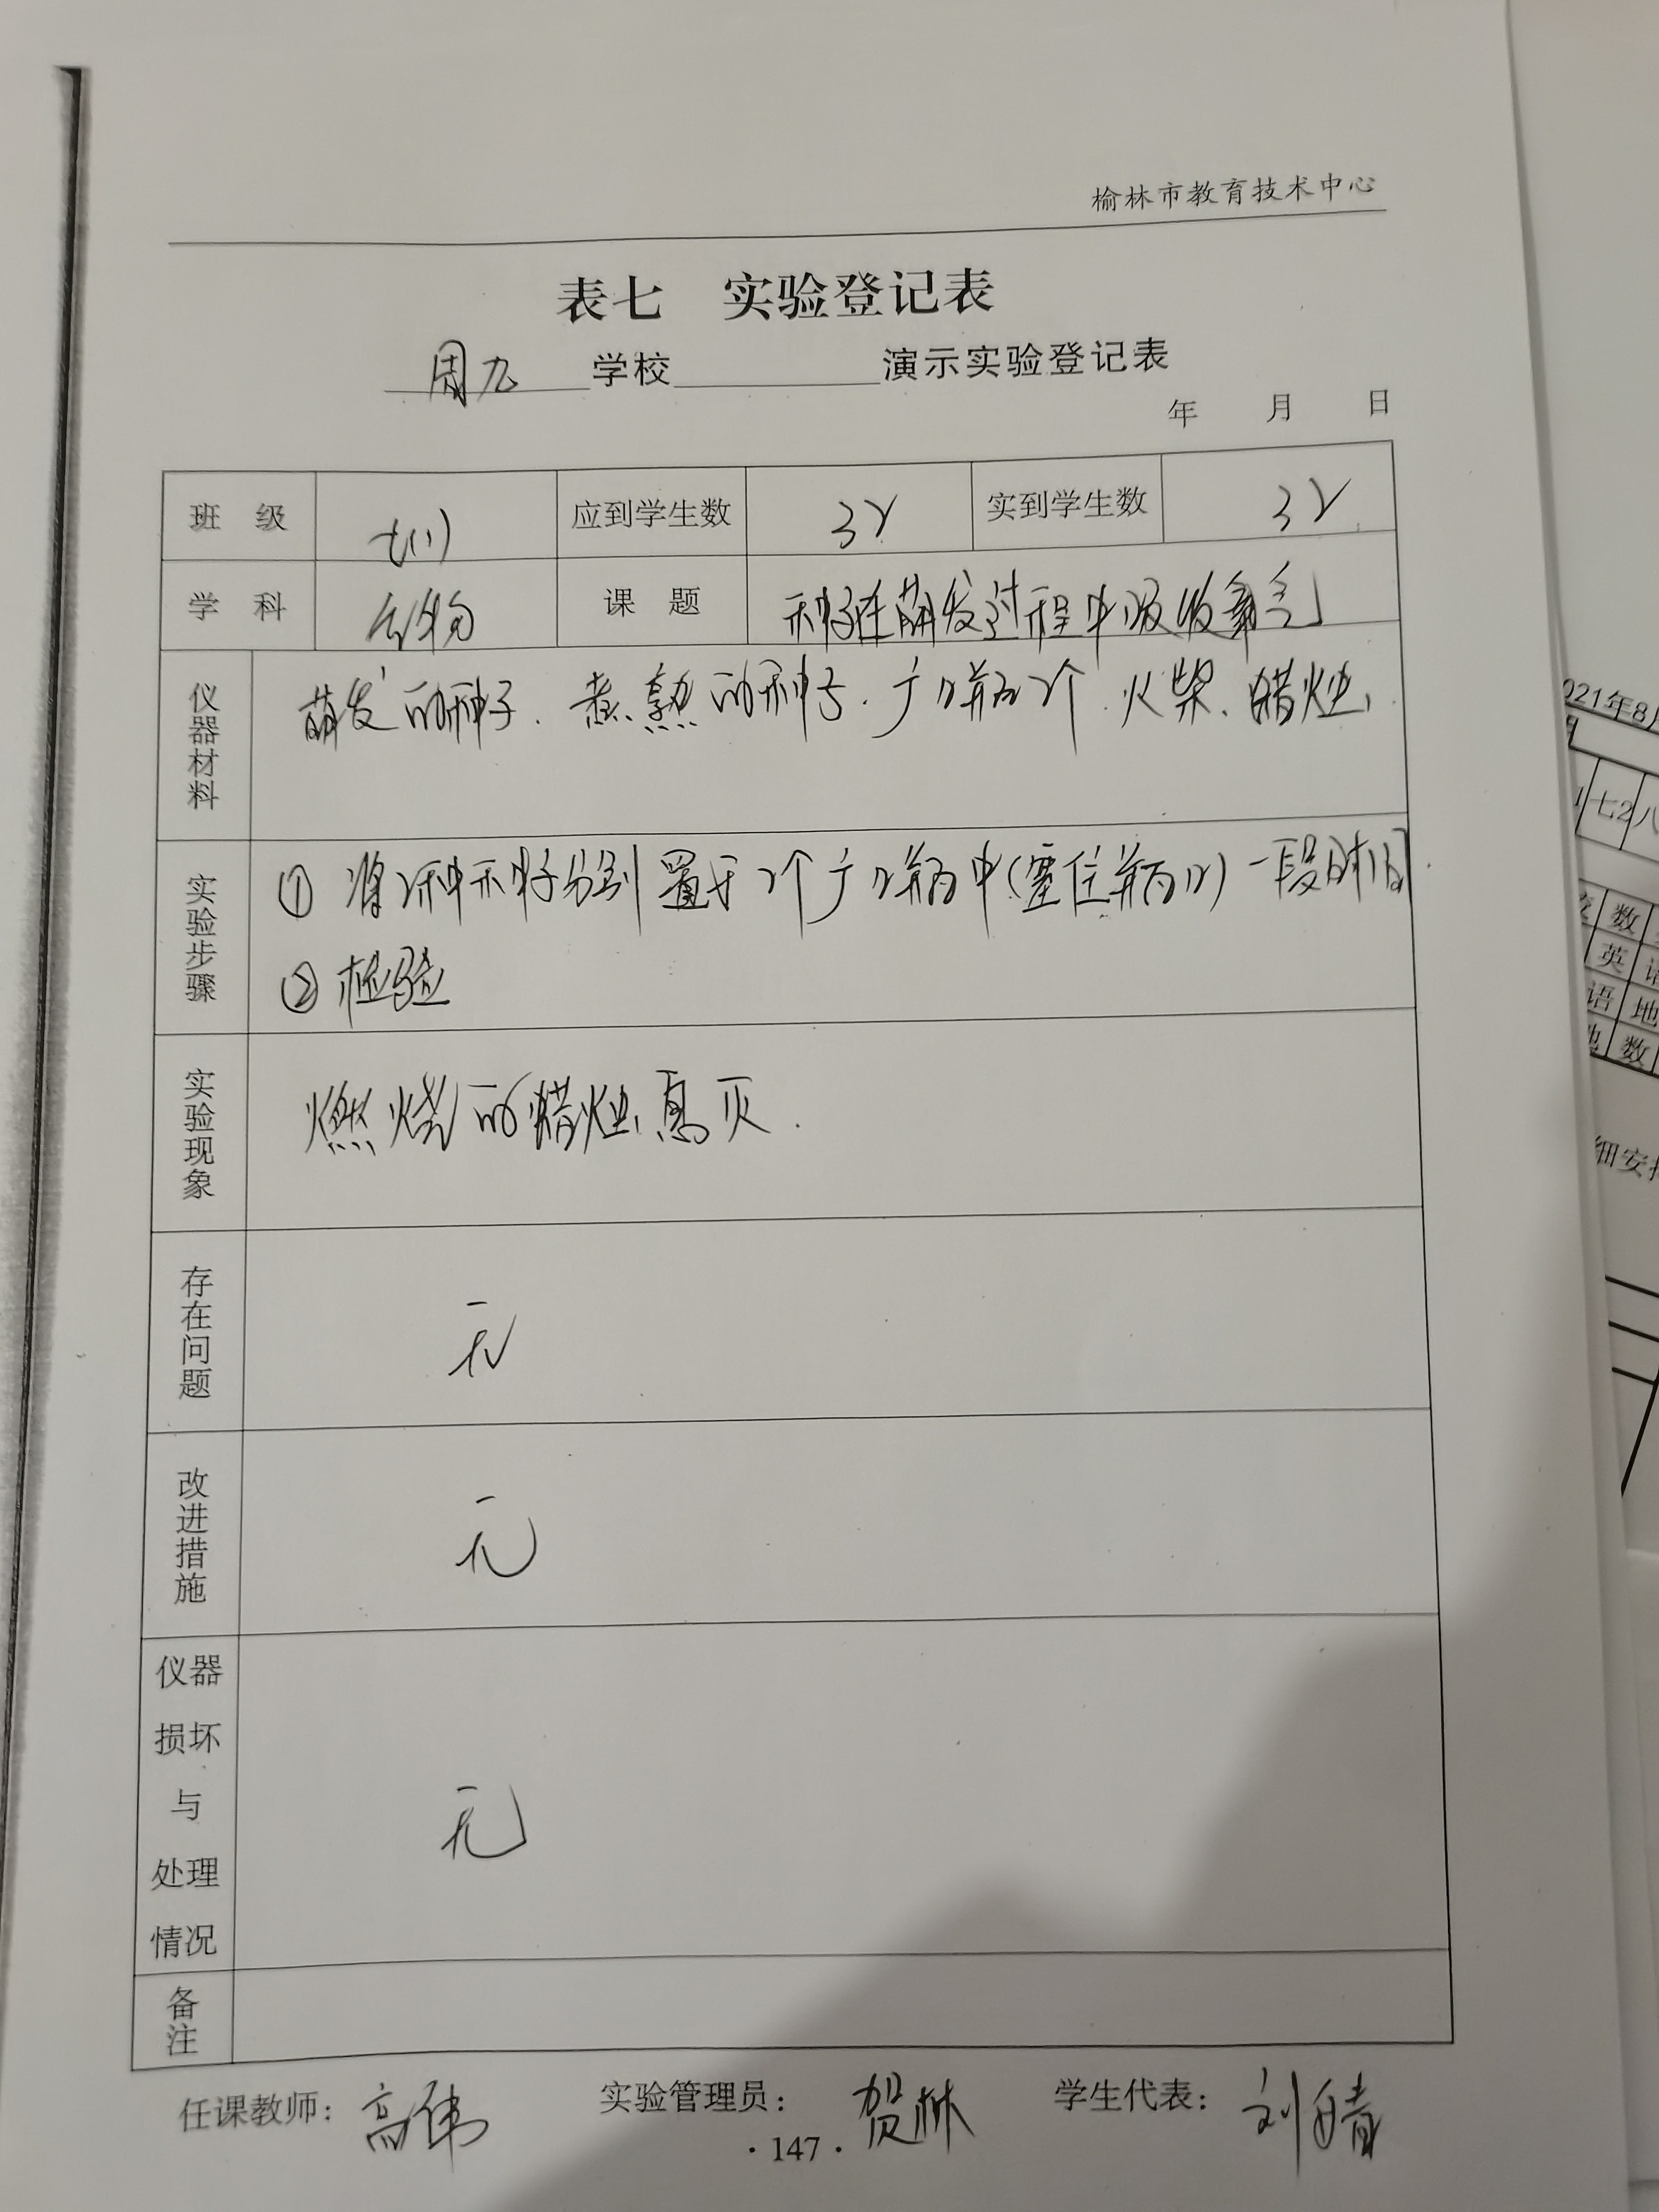 榆林市教育技术中心
表七 实验登记表
周九学校 演示实验登记表
年 月 日
班级 七(1) 应到学生数 32 实到学生数 32
学科 生物 课题 种子在萌发过程中吸收氧气
仪器材料 萌发的种子、煮熟的种子、广口瓶2个、火柴、蜡烛、
实验步骤 ① 将2种种子分别置于2个广口瓶中(塞住瓶口)一段时间.
② 检验
实验现象 燃烧的蜡烛息灭.
存在问题 无
改进措施 无
仪器损坏与处理情况 无
备注
任课教师: 高伟 实验管理员: 贺林 学生代表: 刘晴
·147·
021年8月
七2 八
数
英 语
语 地
地 数
细安排